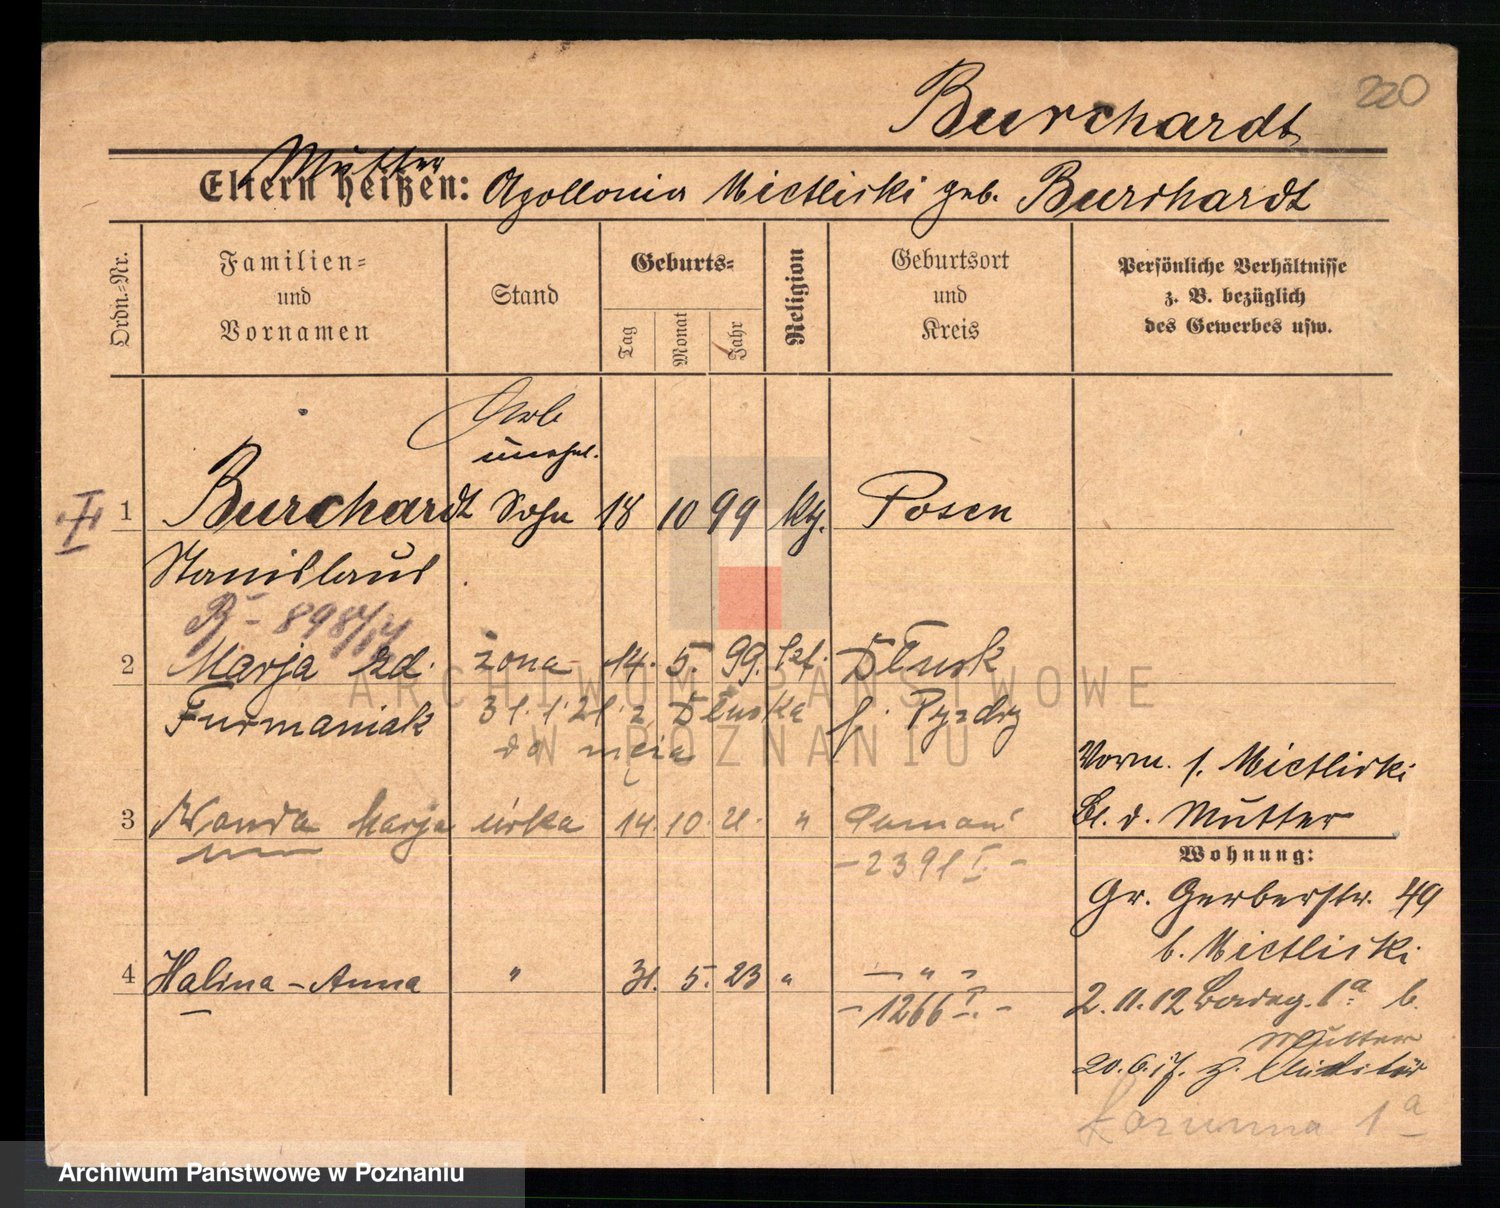 220
Burchardt
Mutter
Eltern heißen: Apollonia Mietliski geb. Burchardt
Ordn.=Nr.
Familien=
und
Vornamen
Stand
Geburts=
Tag
Monat
Jahr
Religion
Geburtsort
und
Kreis
Persönliche Verhältnisse
z. B. bezüglich
des Gewerbes usw.
Arb
unehel.
1 Burchardt Sohn 18 10 99 kth. Posen
Stanislaus
B - 898/14
2 Marja zd. żona 14. 5. 99. kt. Dłusk
Furmaniak 31.1.21 z Dłuska p. Pyzdry
do męża
Vorm. s. Mietliski
Bl. d. Mutter
3 Wanda Marja córka 14. 10. 21. " Poznań
- 2391 I. -
Wohnung:
Gr. Gerberstr. 49
b. Mietliski
4 Halina - Anna " 31. 5. 23 " - " -
- 1266 I. -
2.11.12 1a b.
Mutter
20.6.17. z. Militär
1a
ARCHIWUM PAŃSTWOWE
W POZNANIU
Archiwum Państwowe w Poznaniu